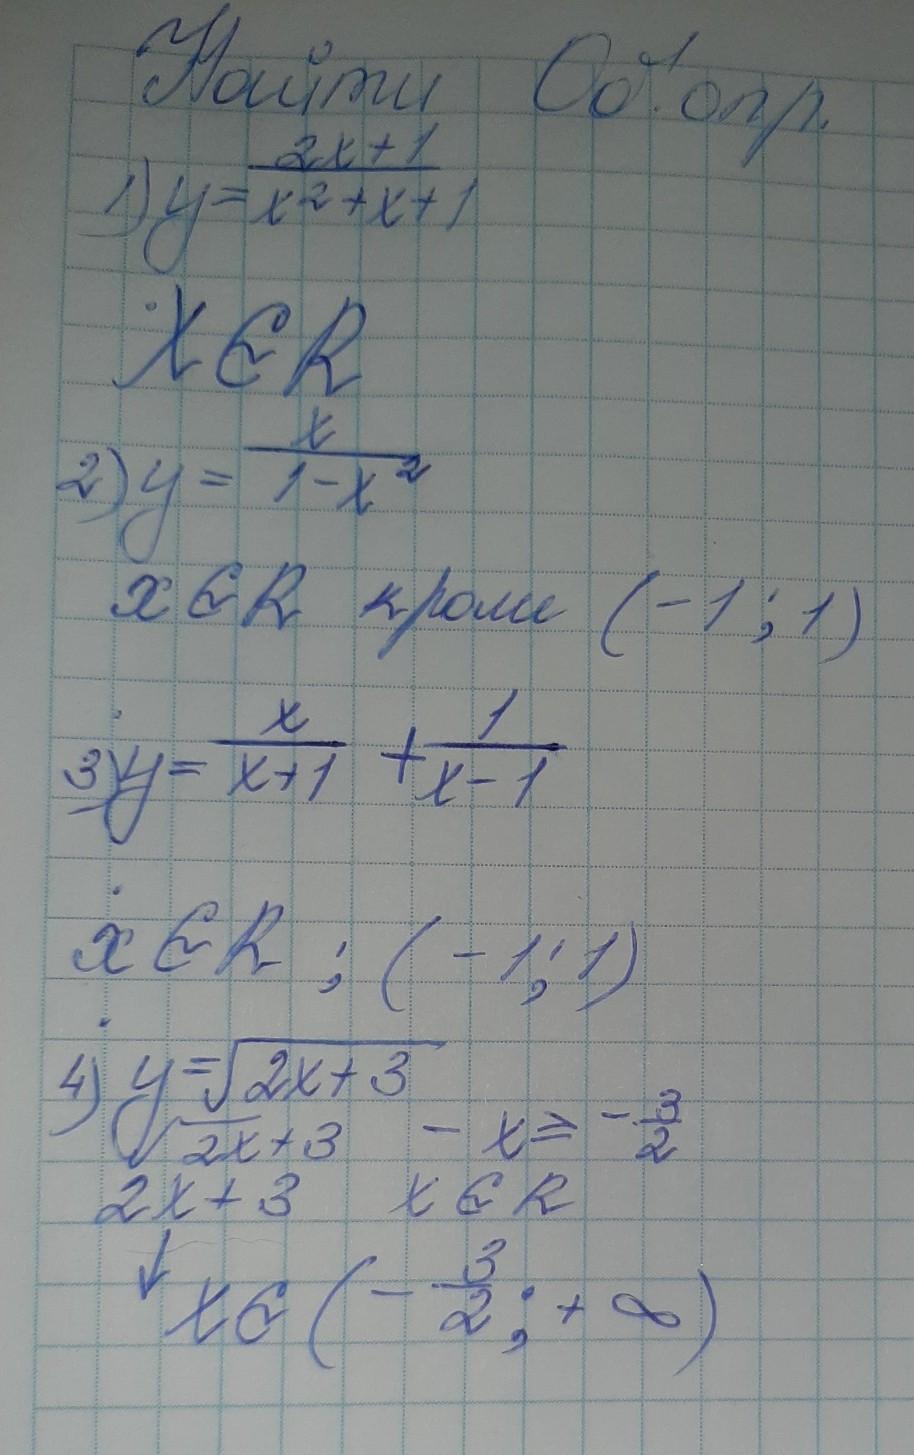 Найти Об. опр.
1) y = (2x+1)/(x²+x+1)
x∈R
2) y = x/(1-x²)
x∈R кроме (-1; 1)
3) y = x/(x+1) + 1/(x-1)
x∈R ; (-1; 1)
4) y = √(2x+3)
√(2x+3) - x ≥ -3/2
2x+3 x∈R
↓
x∈(-3/2; +∞)